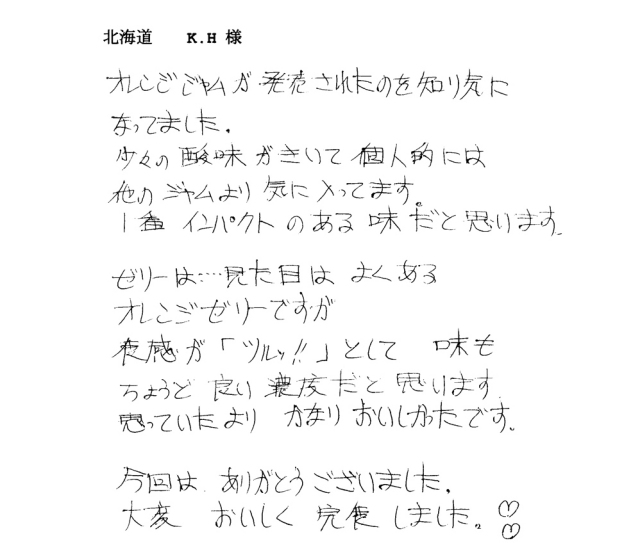 北海道　K.H 様
オレンジジャムが発売されたのを知り気に
なってました。
少々の酸味がきいて個人的には
他のジャムより気に入ってます。
1番 インパクトのある味だと思います。
ゼリーは…見た目はよくある
オレンジゼリーですが
食感が「ツルッ!!」として 味も
ちょうど良い濃度だと思います
思っていたより かなりおいしかったです。
今回は ありがとうございました。
大変 おいしく 完食しました。♡♡